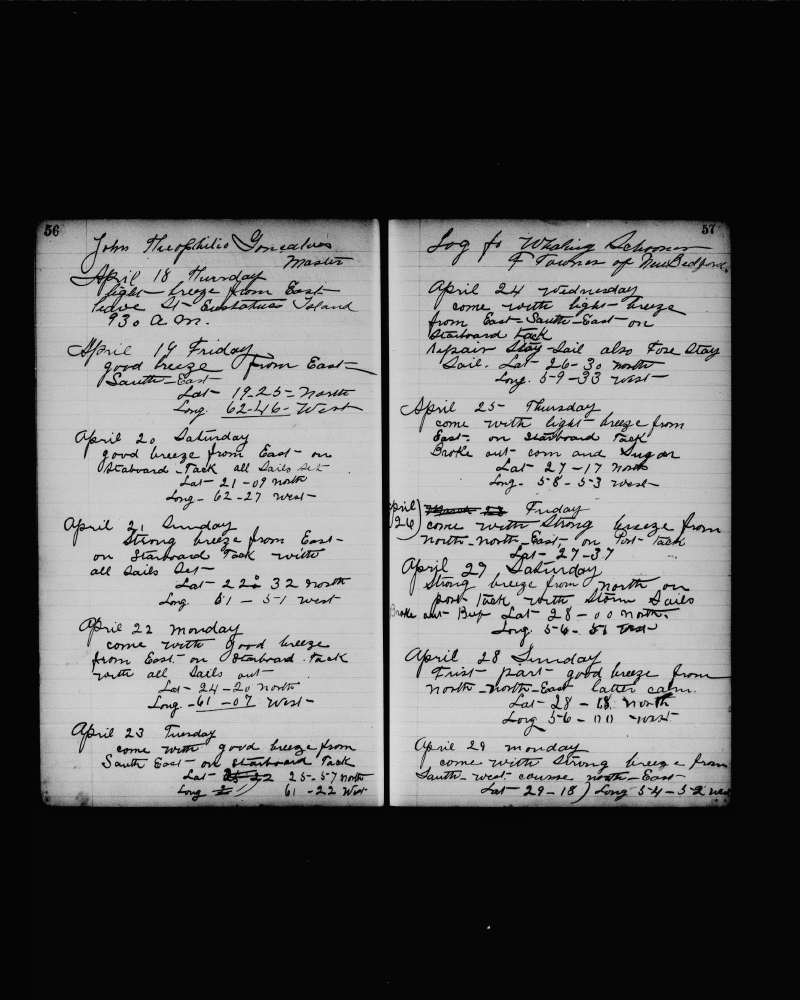 56
John Theophilio Gonsalves
Master
April 18 Thursday
light breeze from East
leave St Eustatius Island
930 a m.
April 19 Friday
good breeze from East
South-East
Lat 19-25= North
Long. 62-46- West
April 20 Saturday
good breeze from East- on
Staboard-Tack all Sails set
Lat- 21-09 north
Long- 62-27 west-
April 21 Sunday
Strong breeze from East-
on Starboard Tack with
all Sails Set-
Lat- 22: 32 north
Long. 61 - 51 west
April 22 monday
come with good breeze
from East- on Starboard. tack
with all Sails out-
Lat- 24-20 north
Long-61-07 West-
April 23 Tuesday
come with good breeze from
South East- on starboard Tack
Lat- 25-57 north
Long 61-22 West
57
Log fo Whaling Schooner
Towner of New Bedford.
April 24 wednesday
come with light- breeze
from East-South-East on
Starboard tack
repair Stay-Sail also Fore Stay
Sail. Lat- 26-30 north
Long. 59-33 west-
April 25- Thursday
come with light- breeze from
East- on Starboard Tack
Broke out- corn and Sugar
Lat- 27-17 north
Long- 58-53 west-
April 26) Friday
come with Strong breeze from
north-north-East- on Port- Tack
Lat- 27-37
April 29 Saturday
Strong breeze from north on
port tack with Storm Sails
Broke out- Beef Lat- 28-00 north.
Long. 56- 51 West
April 28 Sunday
Frist- part- good breeze from
north-north-East- latter calm.
Lat- 28-18. north
Long 56-00 -west-
April 29 monday
come with Strong breeze from
South-west- course north-East-
Lat- 29-18) Long 54-52 west